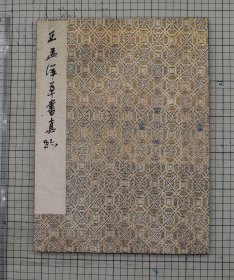 王孟津草书真跡